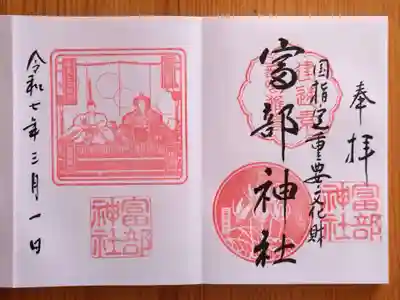 奉拝
国指定重要文化財
富部神社
富部
神社
令和七年三月一日
富部
神社